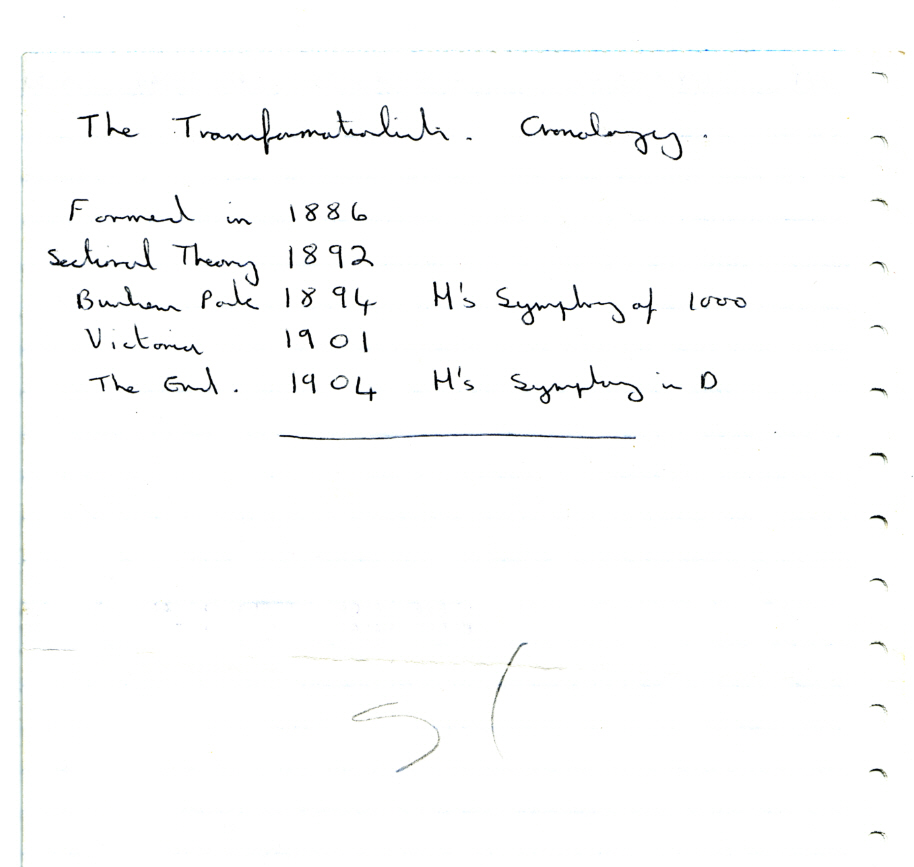 The Transformationlists. Cronology.
Formed in 1886
Sectional Theory 1892
Burnham Park 1894 H's Symphony of 1000
Victoria 1901
The End. 1904 H's Symphony in D
51